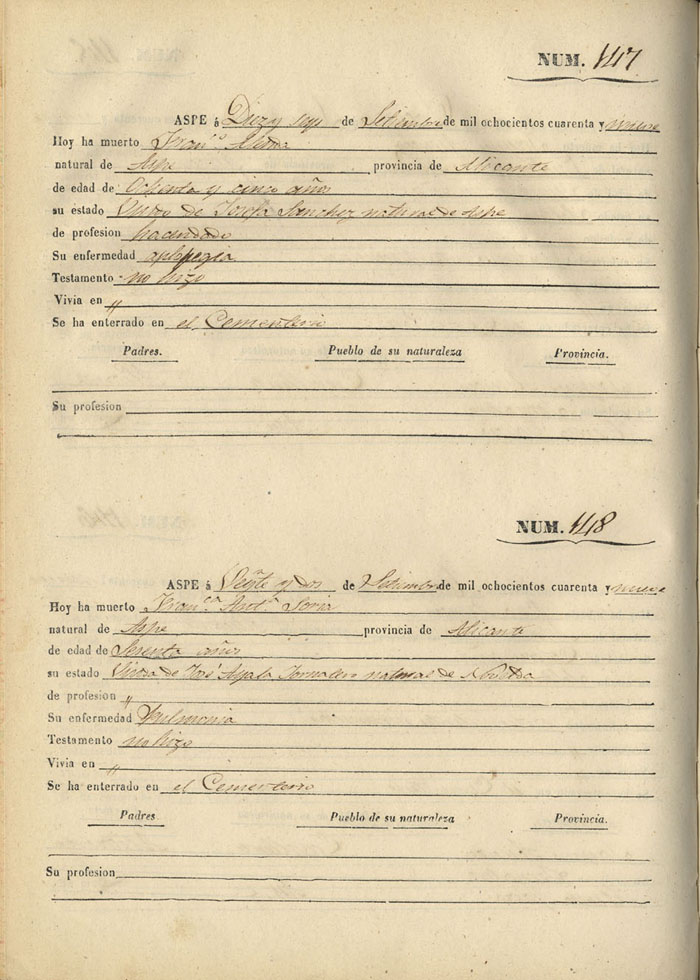 NUM. 147
ASPE á Diez y seys de Setiembre de mil ochocientos cuarenta y nueve
Hoy ha muerto Fran.co
natural de Aspe provincia de Alicante
de edad de Ochenta y cinco años
su estado Viudo de Josefa Sanchez natural de Aspe
de profesion hacendado
Su enfermedad
Testamento no hizo
Vivia en "
Se ha enterrado en el Cementerio
Padres. Pueblo de su naturaleza Provincia.
Su profesion
NUM. 148
ASPE á Veynte y dos de Setiembre de mil ochocientos cuarenta y nueve
Hoy ha muerto Fran.ca Ant.a Soria
natural de Aspe provincia de Alicante
de edad de años
su estado Viuda de José Ayala Jornalero natural de Novelda
de profesion "
Su enfermedad Pulmonia
Testamento no hizo
Vivia en "
Se ha enterrado en el Cementerio
Padres. Pueblo de su naturaleza Provincia.
Su profesion